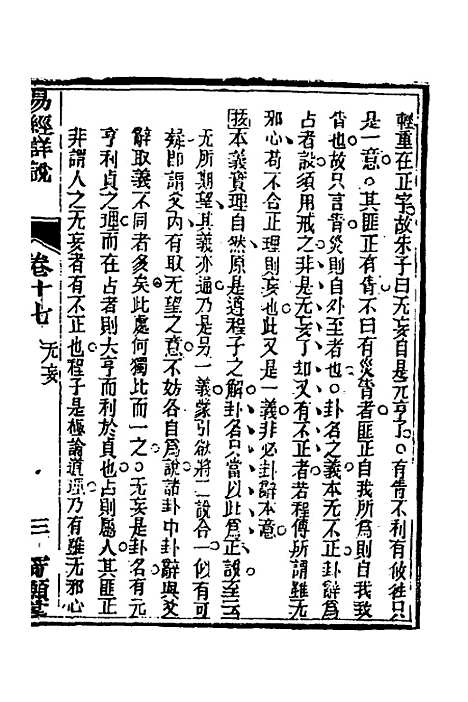 輕重在正字故朱子曰无妄自是元亨了有眚不利有攸往只
是一意其匪正有眚不曰有災眚者匪正自我所爲則自我致
眚也故只言眚災則自外至者也卦名之義本无不正卦辭爲
占者說須用戒之非是无妄了却又有不正者若程傳所謂雖无
邪心苟不合正理則妄也此又是一義非必卦辭本意
按本義實理自然原是遵程子之解卦名只當以此爲正說至云
无所期望其義亦通乃是另一義蒙引欲將二說合一似有可
疑即謂爻內有取无望之意不妨各自爲說諸卦中卦辭與爻
辭取義不同者多矣此處何獨比而一之无妄是卦名有元
亨利貞之理而在占者則大亨而利於貞也占則屬人其匪正
非謂人之无妄者有不正也程子是極論道理乃有雖无邪心
易經詳說
卷十七
无妄
三
寄願堂